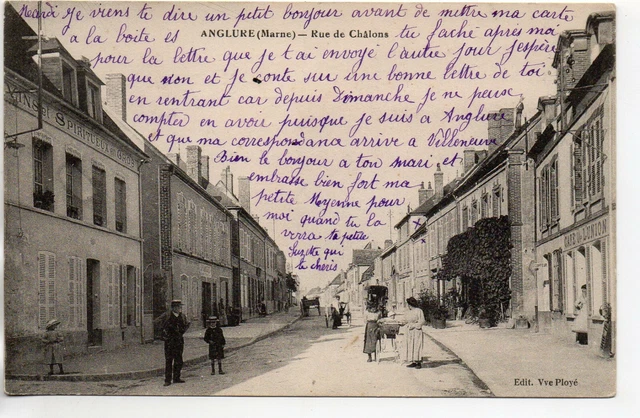 Mardi je viens te dire un petit bonjour avant de mettre ma carte
a la boite es tu faché après moi
ANGLURE (Marne) — Rue de Châlons
pour la lettre que je t'ai envoyé l'autre jour j'espère
que non et je conte sur une bonne lettre de toi
en rentrant car depuis Dimanche je ne peus
compter en avoir puisque je suis a Anglure
et que ma correspondance arrive a Villeneuve
Bien le bonjour a ton mari, et
embrasse bien fort ma
petite Myenne pour
moi quand tu la
verra ta petite
Suzette qui
te cheris
VINS ET SPIRITUEUX GROS
CAFÉ DE L'UNION
Edit. Vve Ployé